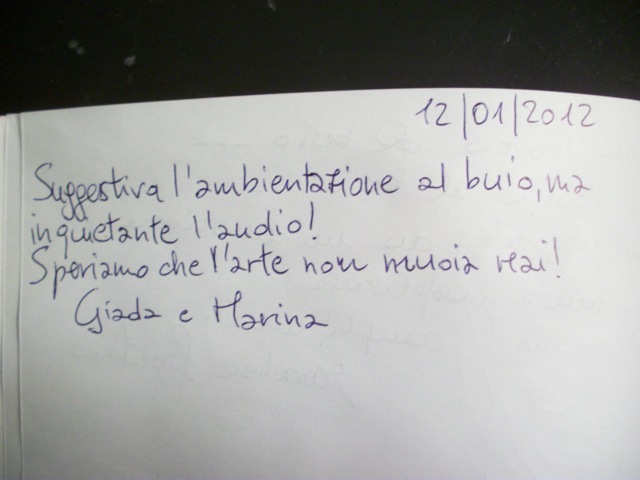 12/01/2012
Suggestiva l'ambientazione al buio, ma
inquietante l'audio!
Speriamo che l'arte non muoia mai!
Giada e Marina